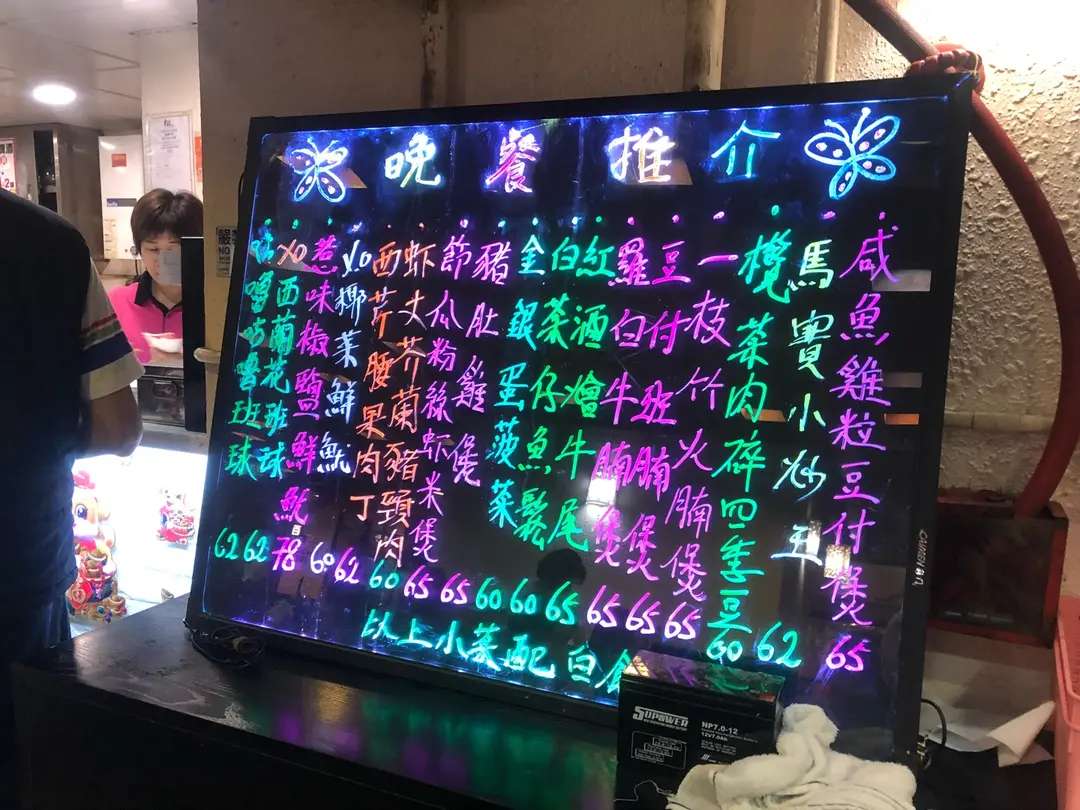 晚餐推介
咸魚雞粒豆付煲 65
馬寶小炒王 62
欖菜肉碎四季豆 60
一枝竹火腩煲 65
豆付班腩煲 65
羅白牛腩煲 65
紅酒燴牛尾 65
白菜仔魚鬆 60
金銀蛋菠菜 60
豬肚雞煲 65
節瓜粉絲虾米煲 65
虾丈芥蘭豬頸肉 60
西芹腰果肉丁 62
X.O椰菜鮮魷 60
惹味椒鹽鮮魷 78
XO西蘭花班球 62
咕嚕咕嚕班球 62
以上小菜配白
SUPOWER
NP7.0-12
12V7.0Ah